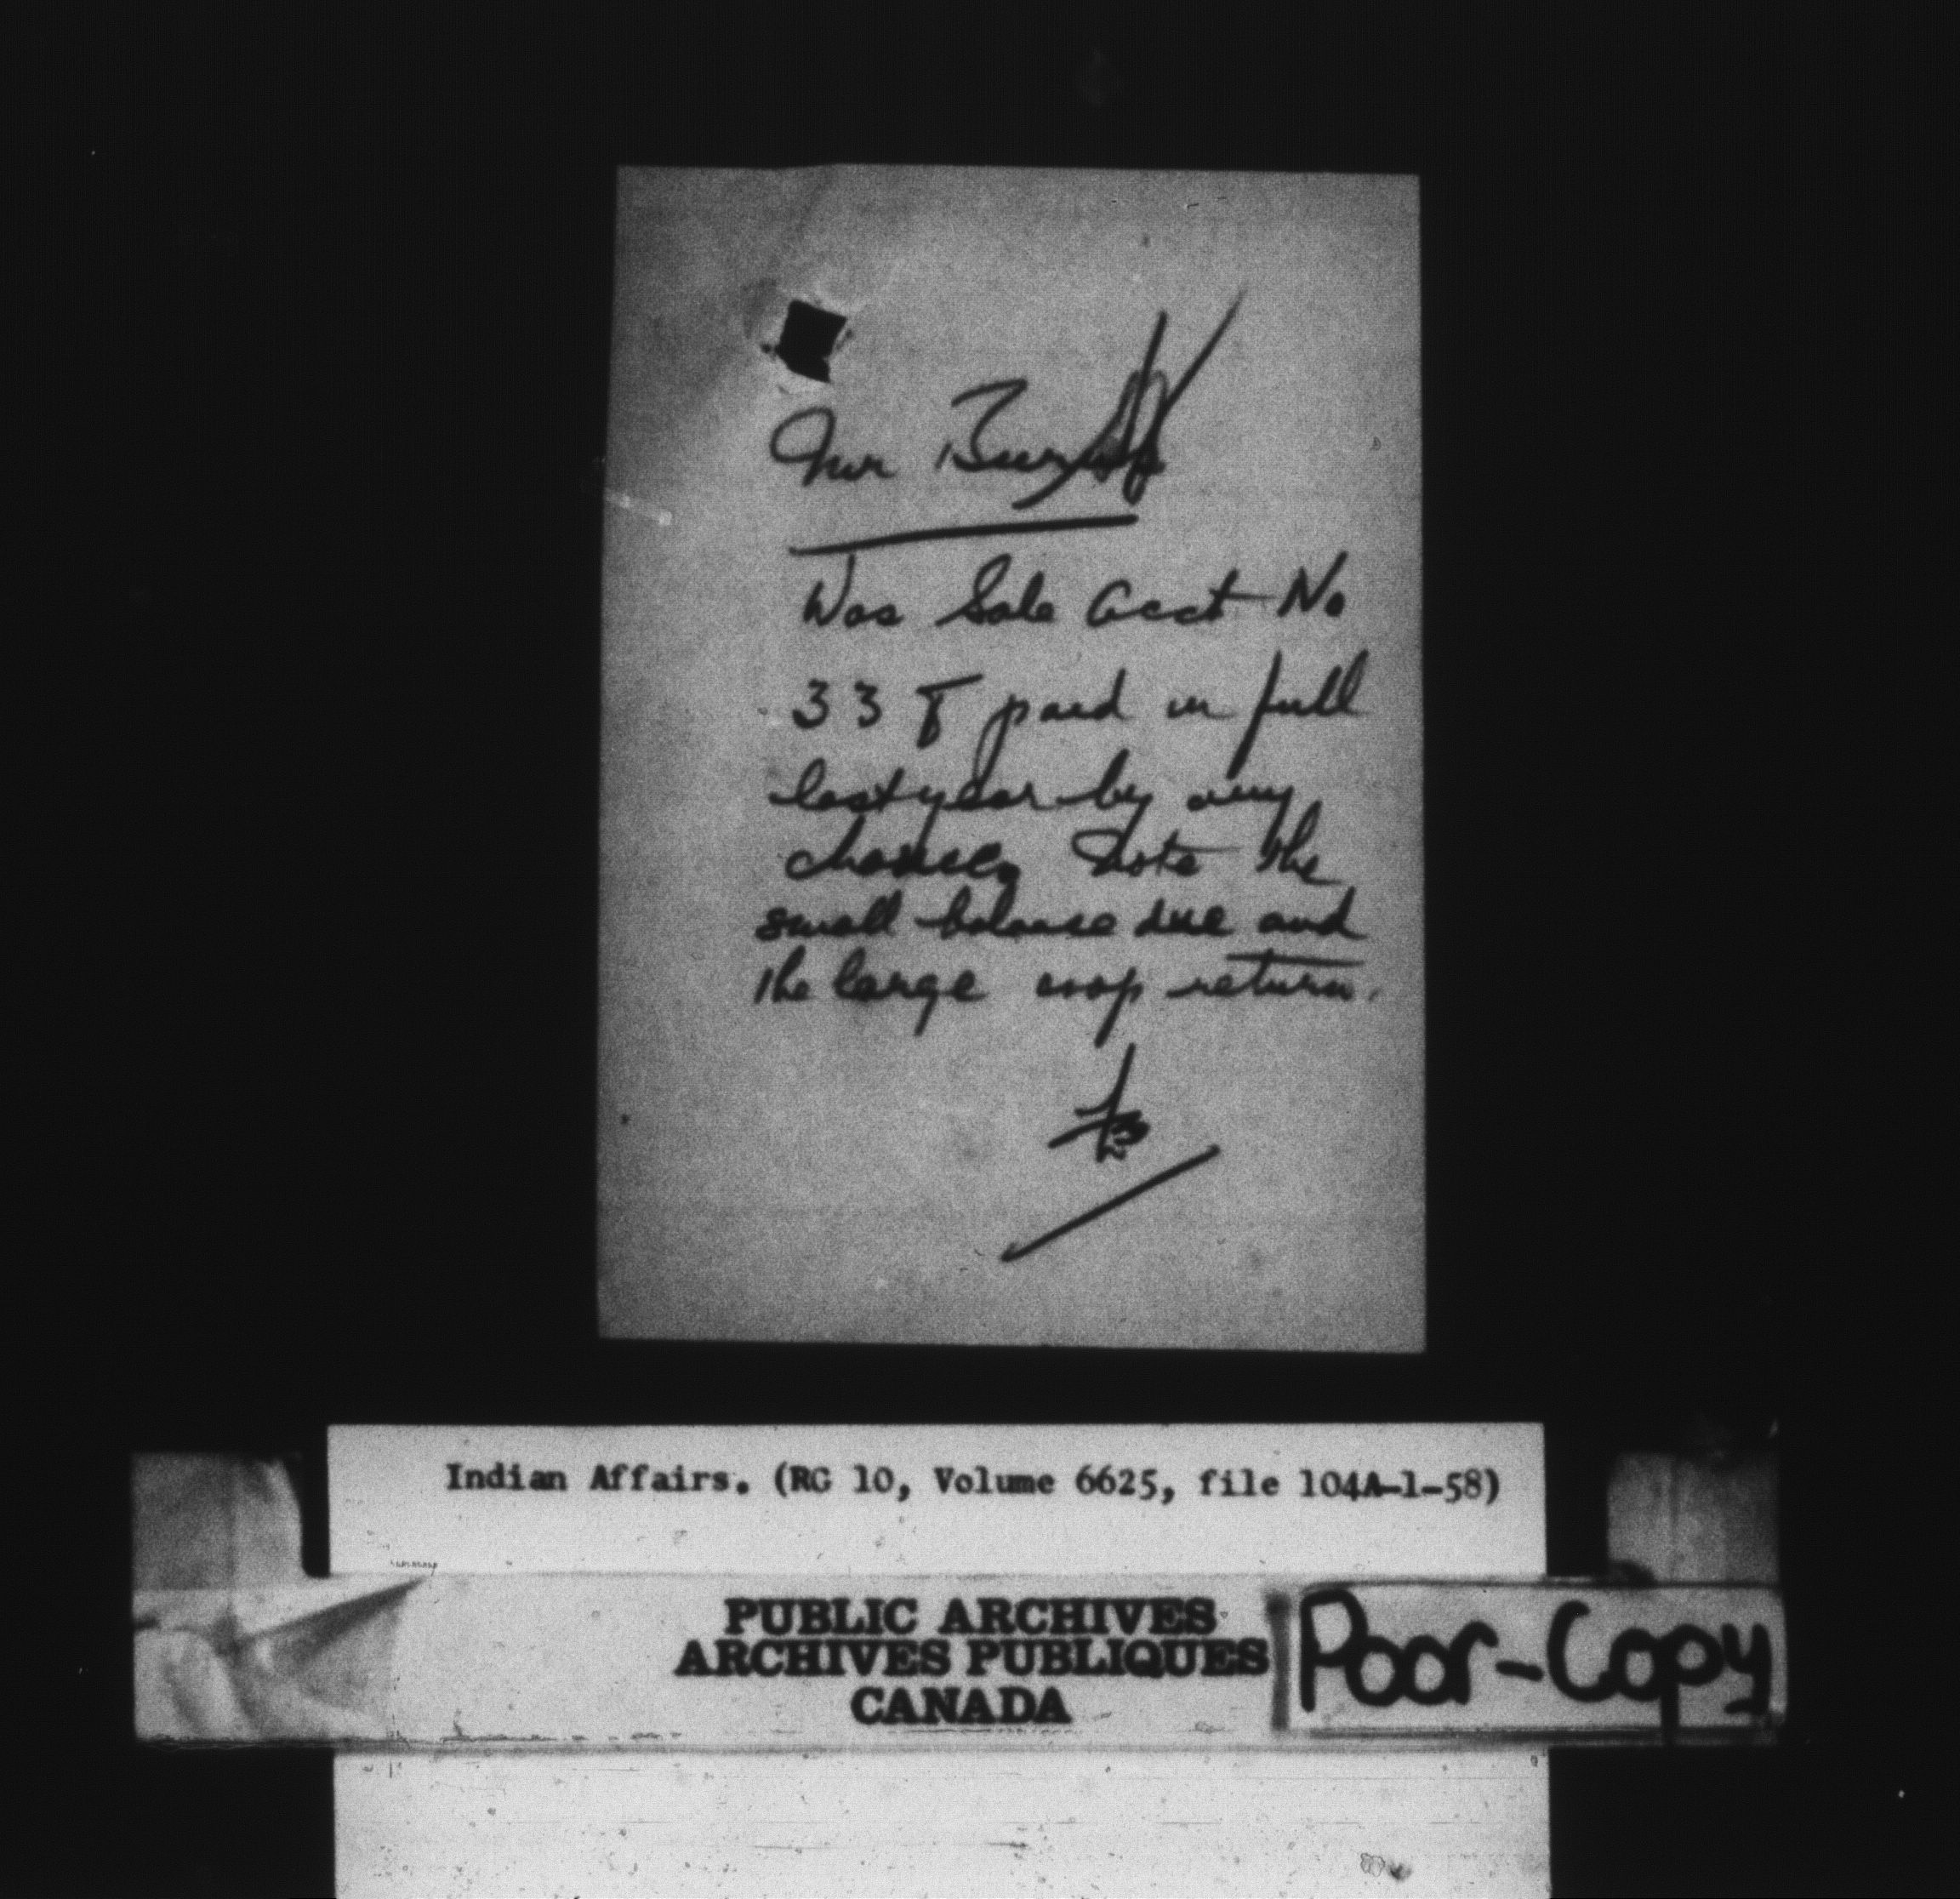 Mr
Was Sale Acct No
33 paid in full
last year by any
chance, Note the
small balance due and
the large crop return.
Indian Affairs. (RG 10, Volume 6625, file 104A-1-58)
PUBLIC ARCHIVES
ARCHIVES PUBLIQUES
CANADA
Poor-Copy